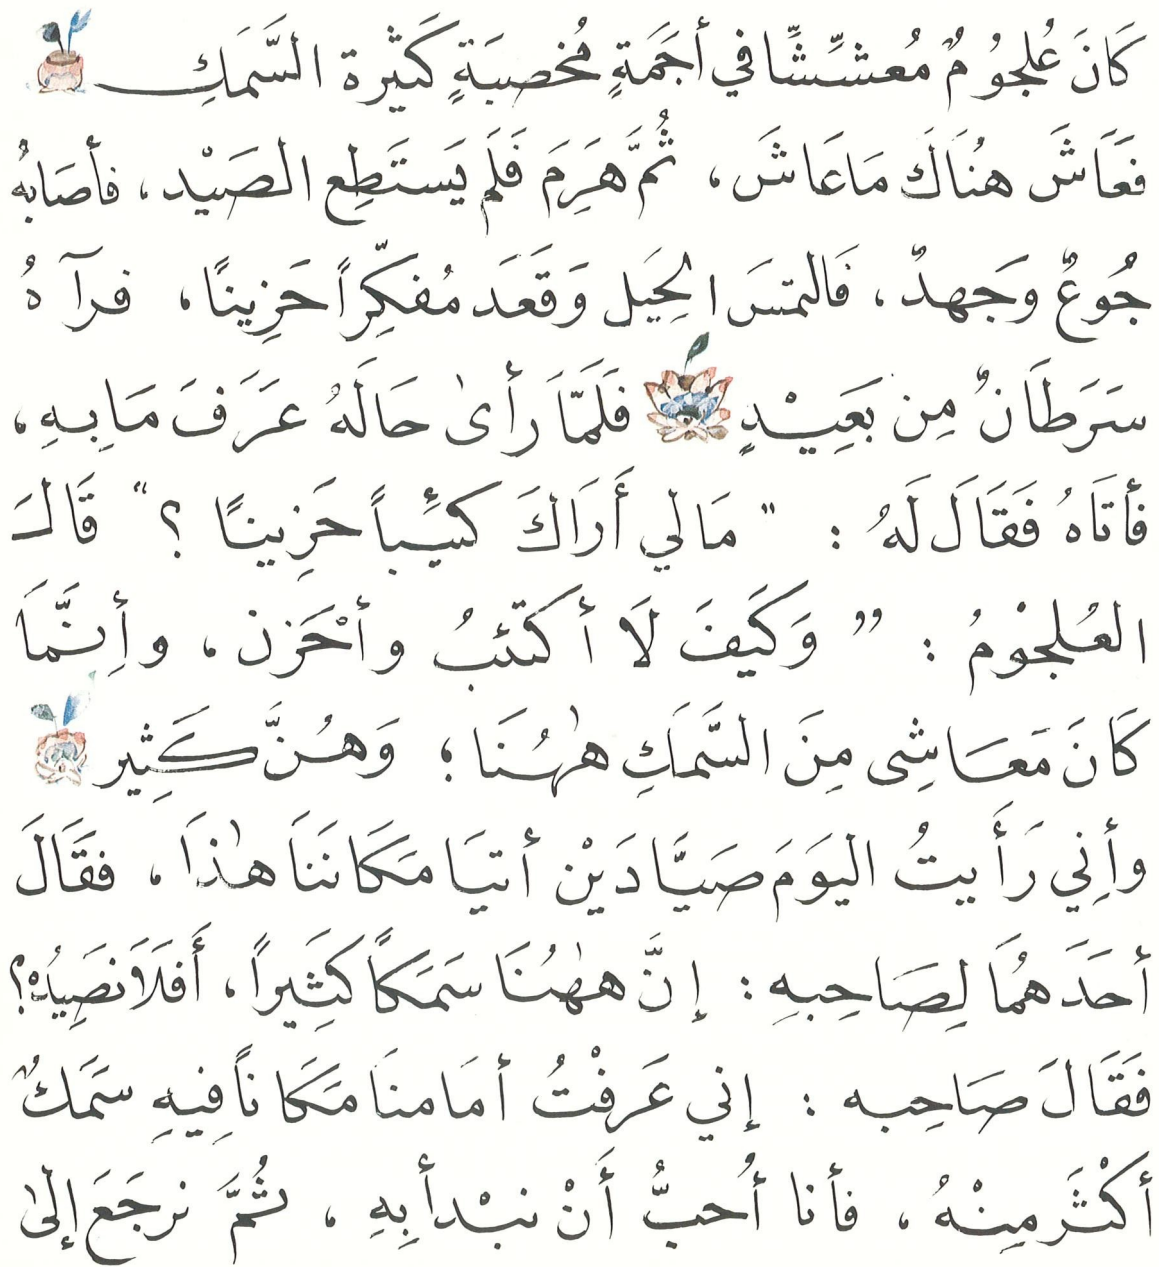 كَانَ عُلجُومٌ مُعشِّشًا في أجَمَةٍ مُخصِبَةٍ كَثيرة السَّمَكِ
فعَاشَ هنُاَكَ مَاعَاشَ، ثُمَّ هَرِمَ فَلَم يَستَطِع الصَيْد، فأصَابهُ
جُوعٌ وَجَهدٌ، فَالتمَسَ الحِيَل وَقَعَد مُفكِّراً حَزِينًا، فرآهُ
سَرَطَانٌ مِن بَعِيْدٍ فَلَمَّا رأى حَالَهُ عَرَفَ مَا بِهِ،
فأتَاهُ فَقَالَ لَهُ : " مَالي أَرَاكَ كئيباً حَزِينًا ؟" قَالَ
العُلجْومُ : ” وَكَيفَ لَا أكتَئبُ وأحْزَن، وإنَّمَا
كَانَ مَعَاشِى مِنَ السَّمَكِ هٰهُنَا؛ وَهُنَّ كَثِير
وأِني رَأيتُ اليَومَ صَيَّادَيْن أتيَا مَكَاننَاَ هٰذَا، فقَالَ
أحَدَهُمَا لِصَاحِبهِ : إنَّ هٰهُنَا سَمَكاً كَثِيراً، أَفَلاَ نَصِيدُهْ؟
فَقَالَ صَاحِبه : إني عَرَفْتُ أمَامنَا مَكَاناً فِيهِ سَمَكٌ
أكْثَر مِنْهُ، فأنا أُحبُّ أَنْ نبْدأ بِهِ، ثُمَّ نرجَعَ إلىٰ